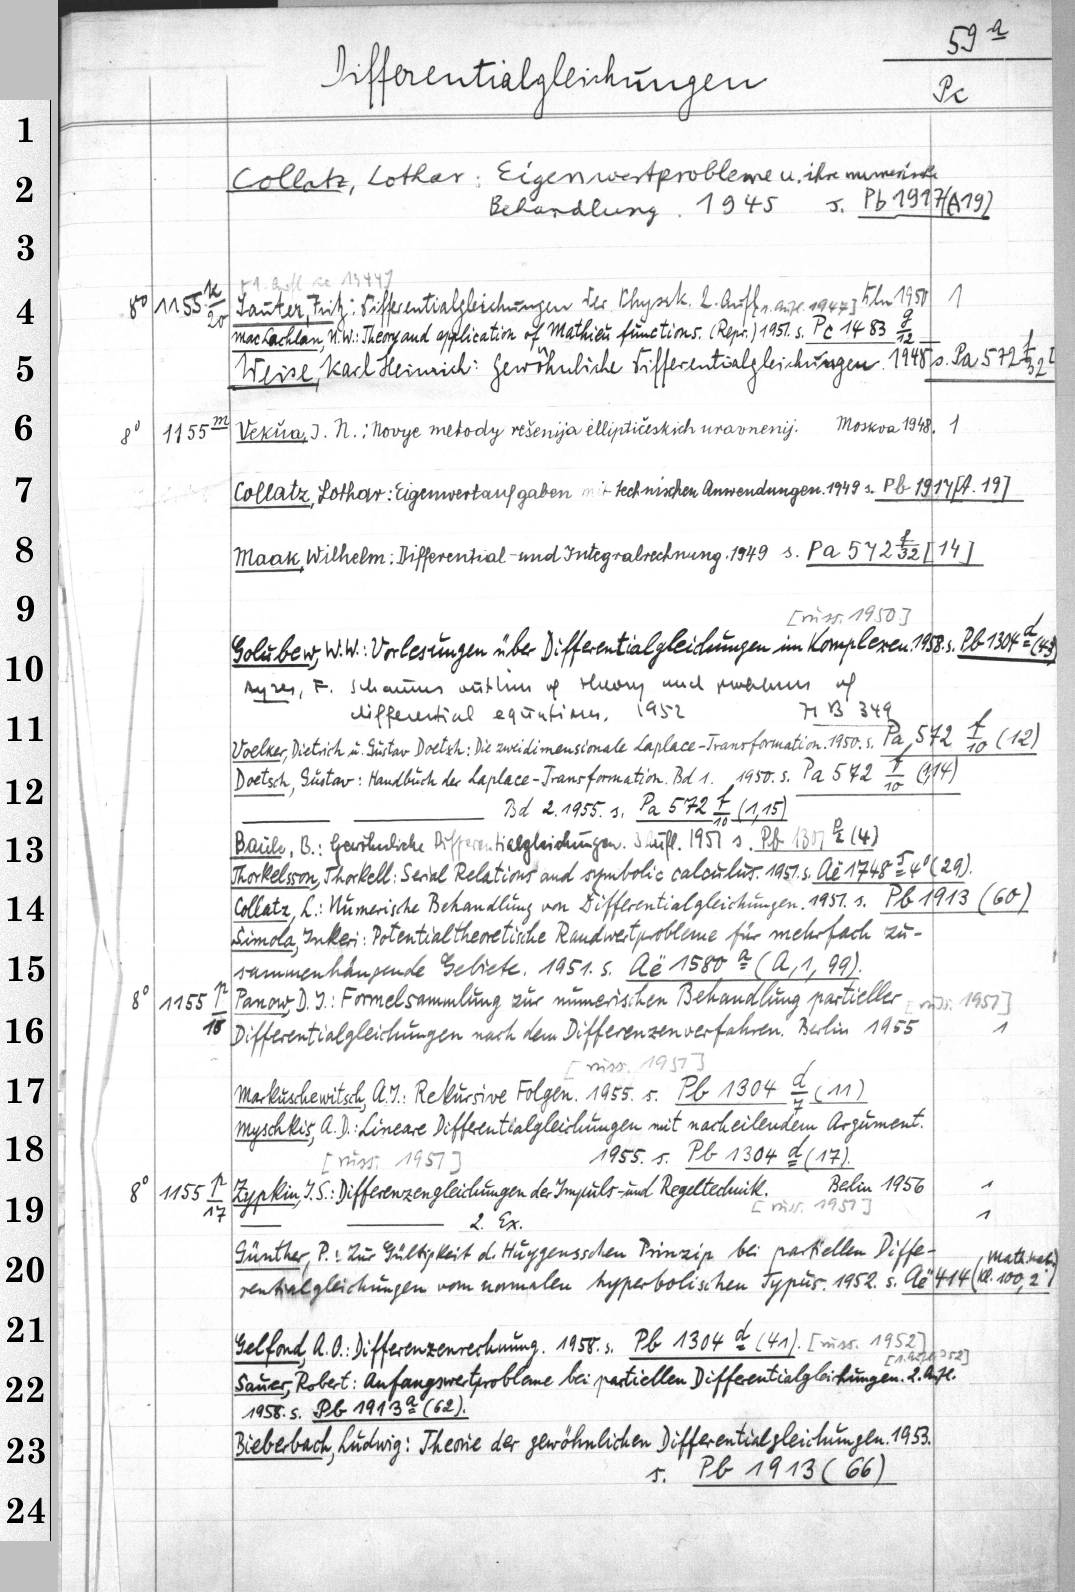 59 a
Differentialgleichungen
Pc
1
Collatz, Lothar: Eigenwertprobleme u. ihre numerische
2
Behandlung. 1945 s. Pb 1917 (A19)
3
[1. Aufl. 1944]
8° 1155 k/20 Sauter, Fritz: Differentialgleichungen der Physik. 2. Aufl. [1. Aufl. 1947] Bln 1950 1
4
MacLachlan, N.W.: Theory and application of Mathieu functions. (Repr.) 1951. s. Pc 1483 g/12
5
Weise, Karl Heinrich: Gewöhnliche Differentialgleichungen. 1948 s. Pa 572 f/32 [
6
8° 1155 m Vekua, I. N.: Novye metody rešenija elliptičeskich uravnenij. Moskva 1948. 1
7
Collatz, Lothar: Eigenwertaufgaben mit technischen Anwendungen. 1949 s. Pb 1917 [A. 19]
8
Maak, Wilhelm: Differential- und Integralrechnung. 1949 s. Pa 572 f/32 [14]
9
[russ. 1950]
Golubew, W.W.: Vorlesungen über Differentialgleichungen im Komplexen. 1958. s. Pb 1304 d (43)
10
Ayres, F. Schaums outline of theory and problems of
differential equations. 1952 H B 349
11
Voelker, Dietrich u. Gustav Doetsch: Die zweidimensionale Laplace-Transformation. 1950. s. Pa 572 f/10 (12)
Doetsch, Gustav: Handbuch der Laplace-Transformation. Bd 1. 1950. s. Pa 572 f/10 (1,14)
12
Bd 2. 1955. s. Pa 572 f/10 (1,15)
13
Baule, B.: Gewöhnliche Differentialgleichungen. Aufl. 1951 s. Pb 1301 (4)
Thorkelsson, Thorkell: Serial Relations and symbolic calculus. 1951. s. Aë 1748 4° (29).
14
Collatz, L.: Numerische Behandlung von Differentialgleichungen. 1951. s. Pb 1913 (60)
Simola, Inkeri: Potentialtheoretische Randwertprobleme für mehrfach zu-
15
sammenhängende Gebiete. 1951. s. Aë 1580 a (A, 1, 99).
8° 1155 p/18 Panow, D. J.: Formelsammlung zur numerischen Behandlung partieller [russ. 1951]
16
Differentialgleichungen nach dem Differenzenverfahren. Berlin 1955 1
[russ. 1951]
17
Markuschewitsch, A.I.: Rekursive Folgen. 1955. s. Pb 1304 d/7 (11)
Myschkis, A.D.: Lineare Differentialgleichungen mit nacheilendem Argument.
18
[russ. 1951] 1955. s. Pb 1304 d (17).
8° 1155 p/17 Zypkin, J.S.: Differenzengleichungen der Impuls- und Regeltechnik. Berlin 1956 1
19
[russ. 1951]
2. Ex. 1
Günther, P.: Zur Gültigkeit d. Huygensschen Prinzip bei partiellen Diffe-
20
rentialgleichungen vom normalen hyperbolischen Typus. 1952. s. Aë 414 (math. nat. Kl. 100, 2)
21
Gelfond, A.O.: Differenzenrechnung. 1958. s. Pb 1304 d (41). [russ. 1952]
22
Sauer, Robert: Anfangswertprobleme bei partiellen Differentialgleichungen. 2. Aufl. [1. Aufl. 1952]
1958. s. Pb 1913 a (62).
23
Bieberbach, Ludwig: Theorie der gewöhnlichen Differentialgleichungen. 1953.
s. Pb 1913 (66)
24